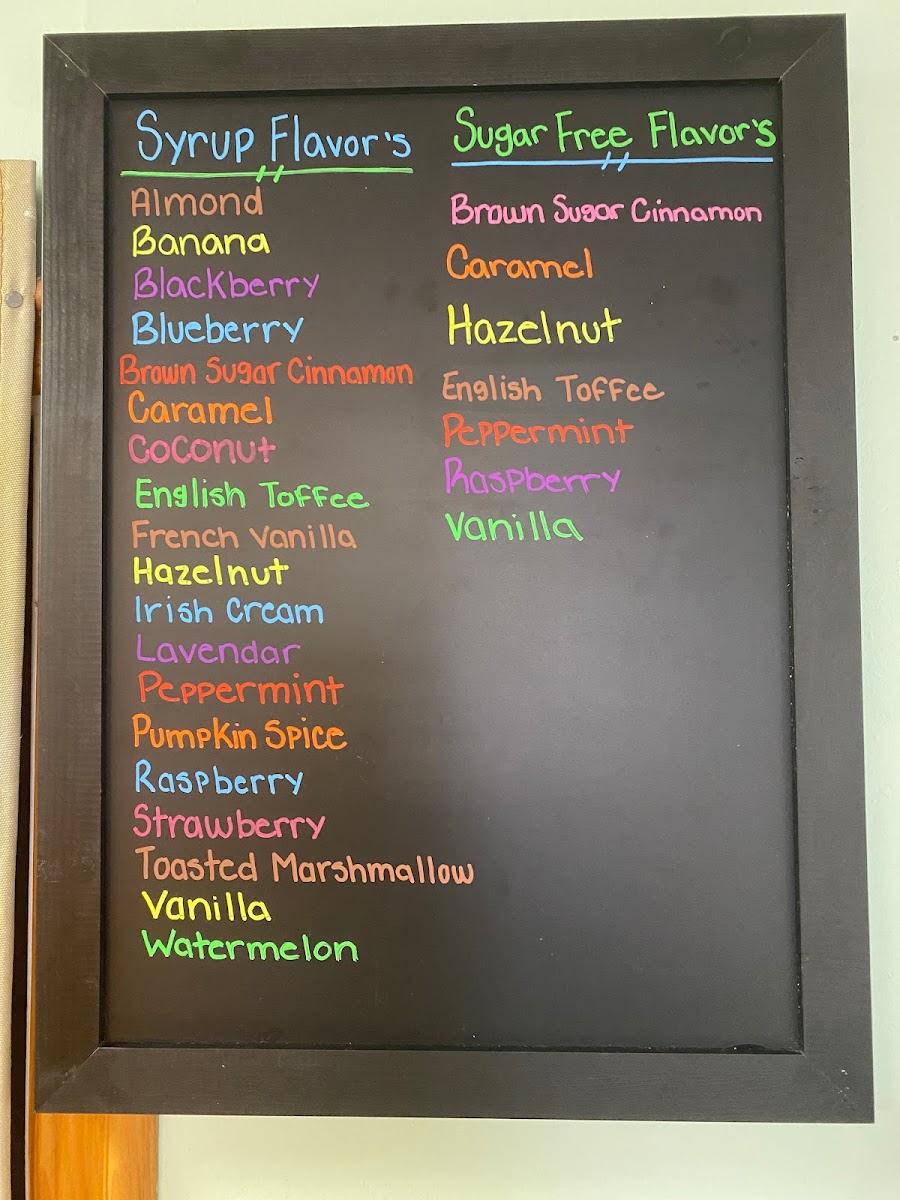 Syrup Flavor's
Almond
Banana
Blackberry
Blueberry
Brown Sugar Cinnamon
Caramel
Coconut
English Toffee
French Vanilla
Hazelnut
Irish Cream
Lavendar
Peppermint
Pumpkin Spice
Raspberry
Strawberry
Toasted Marshmallow
Vanilla
Watermelon
Sugar Free Flavor's
Brown Sugar Cinnamon
Caramel
Hazelnut
English Toffee
Peppermint
Raspberry
Vanilla